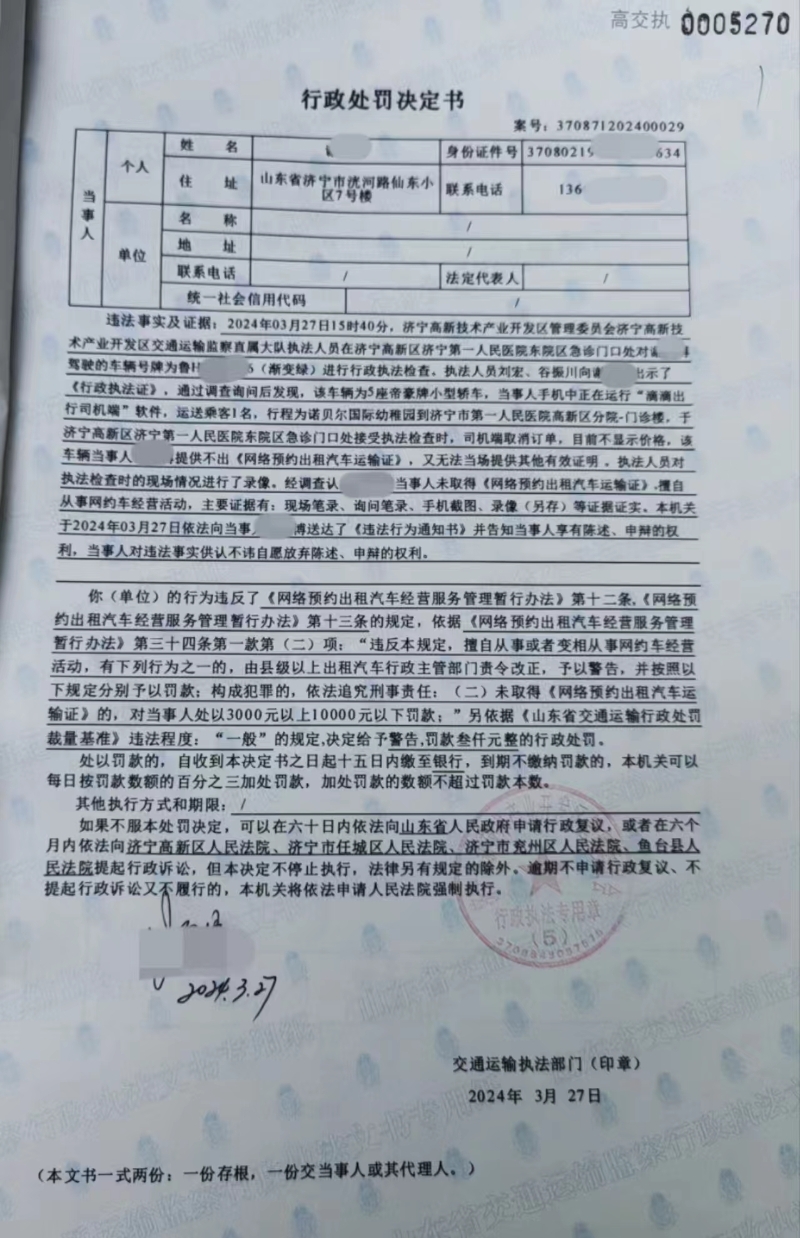 高交执 0005270
行政处罚决定书
案号：370871202400029
当事人
个人
姓 名
身份证件号
37080219
634
住 址
山东省济宁市洸河路仙东小
区7号楼
联系电话
136
单位
名 称
/
地 址
/
联系电话
/
法定代表人
/
统一社会信用代码
/
违法事实及证据：2024年03月27日15时40分，济宁高新技术产业开发区管理委员会济宁高新技
术产业开发区交通运输监察直属大队执法人员在济宁高新区济宁第一人民医院东院区急诊门口处对
驾驶的车辆号牌为鲁H 6（渐变绿）进行行政执法检查。执法人员刘宏、谷振川向 出示了
《行政执法证》，通过调查询问后发现，该车辆为5座帝豪牌小型轿车，当事人手机中正在运行“滴滴出
行司机端”软件，运送乘客1名，行程为诺贝尔国际幼稚园到济宁市第一人民医院高新区分院-门诊楼，于
济宁高新区济宁第一人民医院东院区急诊门口处接受执法检查时，司机端取消订单，目前不显示价格，该
车辆当事人 提供不出《网络预约出租汽车运输证》，又无法当场提供其他有效证明 。执法人员对
执法检查时的现场情况进行了录像。经调查认 当事人未取得《网络预约出租汽车运输证》，擅自
从事网约车经营活动，主要证据有：现场笔录、询问笔录、手机截图、录像（另存）等证据证实。本机关
于2024年03月27日依法向当事 送达了《违法行为通知书》并告知当事人享有陈述、申辩的权
利，当事人对违法事实供认不讳自愿放弃陈述、申辩的权利。
你（单位）的行为违反了《网络预约出租汽车经营服务管理暂行办法》第十二条，《网络预
约出租汽车经营服务管理暂行办法》第十三条的规定，依据《网络预约出租汽车经营服务管理
暂行办法》第三十四条第一款第（二）项：“违反本规定，擅自从事或者变相从事网约车经营
活动，有下列行为之一的，由县级以上出租汽车行政主管部门责令改正，予以警告，并按照以
下规定分别予以罚款；构成犯罪的，依法追究刑事责任：（二）未取得《网络预约出租汽车运
输证》的，对当事人处以3000元以上10000元以下罚款；”另依据《山东省交通运输行政处罚
裁量基准》违法程度：“一般”的规定,决定给予警告,罚款叁仟元整的行政处罚。
处以罚款的，自收到本决定书之日起十五日内缴至银行，到期不缴纳罚款的，本机关可以
每日按罚款数额的百分之三加处罚款，加处罚款的数额不超过罚款本数。
其他执行方式和期限：/
如果不服本处罚决定，可以在六十日内依法向山东省人民政府申请行政复议，或者在六个
月内依法向济宁高新区人民法院、济宁市任城区人民法院、济宁市兖州区人民法院、鱼台县人
民法院提起行政诉讼，但本决定不停止执行，法律另有规定的除外。逾期不申请行政复议、不
提起行政诉讼又不履行的，本机关将依法申请人民法院强制执行。
行政执法专用章
（5）
2024.3.27
交通运输执法部门（印章）
2024年 3月 27日
（本文书一式两份：一份存根，一份交当事人或其代理人。）